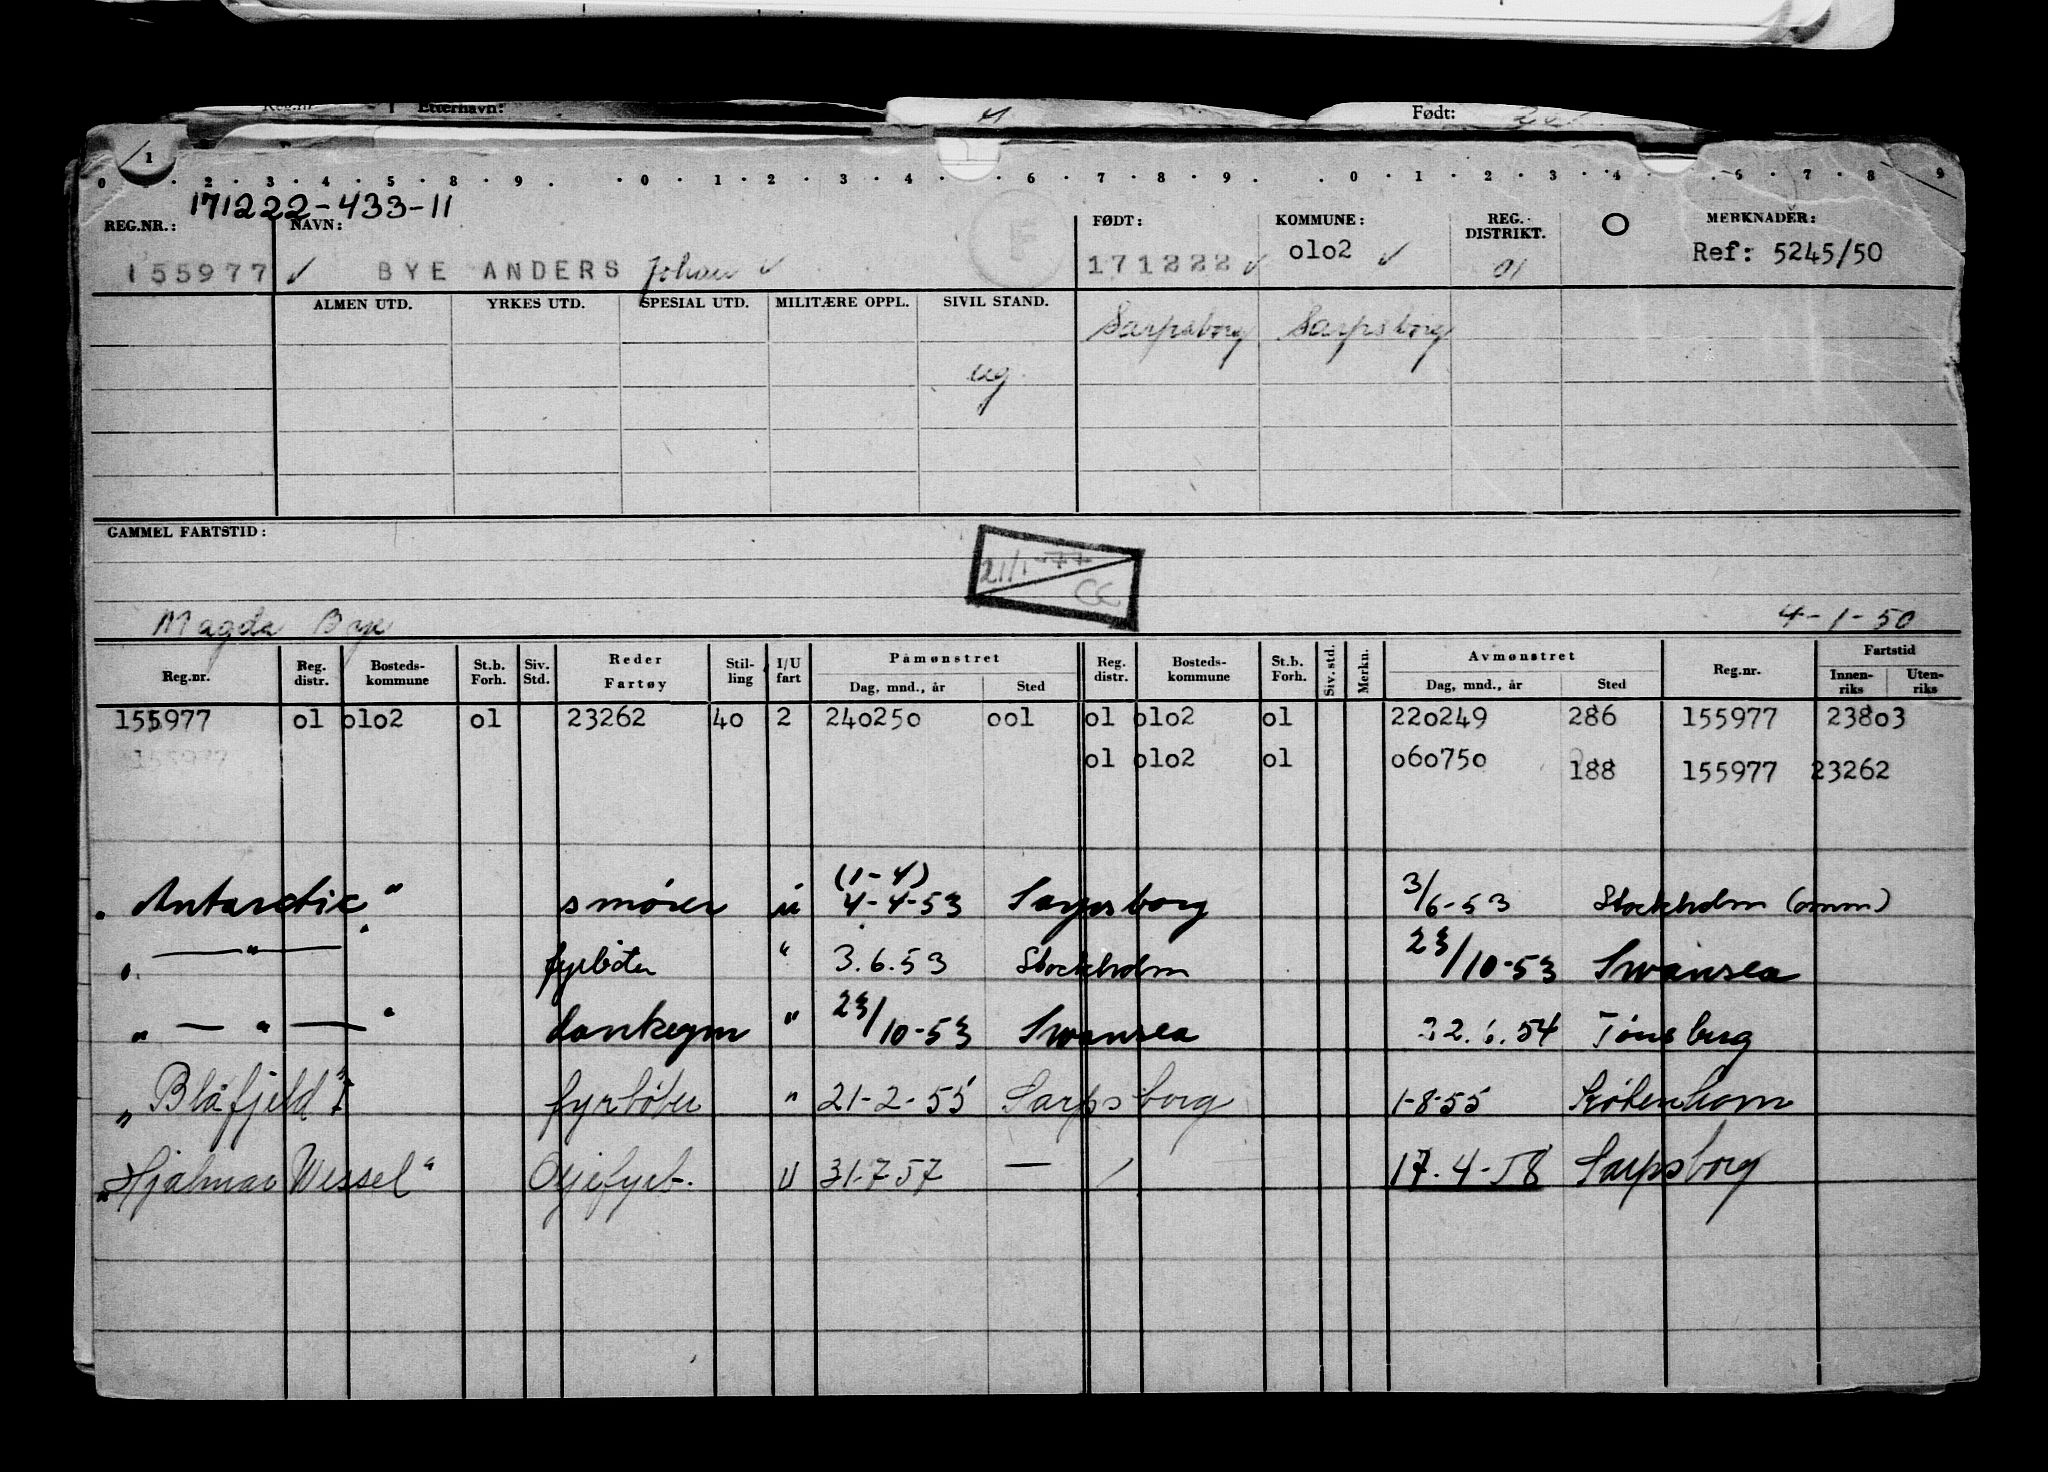 Reg.nr. 1 Etternavn: Født:
1
0 · · 2 · 3 · 4 · 5 · 8 · 9 · · 0 · 1 · 2 · 3 · 4 · · 6 · 7 · 8 · 9 · · 0 · 1 · 2 · 3 · 4 · · 6 · 7 · 8 · 9
171222-433-11
REG.NR.: NAVN: F FØDT: KOMMUNE: REG. DISTRIKT. O MERKNADER:
155977 ✓ BYE ANDERS Johan ✓ 171222 ✓ 0102 ✓ 01 Ref: 5245/50
ALMEN UTD. YRKES UTD. SPESIAL UTD. MILITÆRE OPPL. SIVIL STAND.
Sarpsborg Sarpsborg
ug.
GAMMEL FARTSTID:
21/1-77
CC
Magda Bye 4-1-50
Reg.nr. Reg. distr. Bosteds- kommune St.b. Forh. Siv. Std. Reder Fartøy Stil- ling I/U fart Påmønstret Reg. distr. Bosteds- kommune St.b. Forh. Siv. std. Merkn. Avmønstret Reg.nr. Fartstid
Dag, mnd., år Sted Dag, mnd., år Sted Innen- riks Uten- riks
155977 01 0102 01 23262 40 2 240250 001 01 0102 01 220249 286 155977 23803
155977 01 0102 01 060750 188 155977 23262
(1-4)
"Antarctic" smører u 4-4-53 Sarpsborg 3/6-53 Stockholm (omm)
" — " — " fyrbøter " 3.6.53 Stockholm 23/10-53 Swansea
" — " — " donkeym " 23/10-53 Swansea 22.6.54 Tønsberg
"Blåfjeld I" fyrbøter " 21-2-55 Sarpsborg 1-8-55 København
"Hjalmar Wessel" Oljefyrb. U 31-7 57 — 17.4-58 Sarpsborg